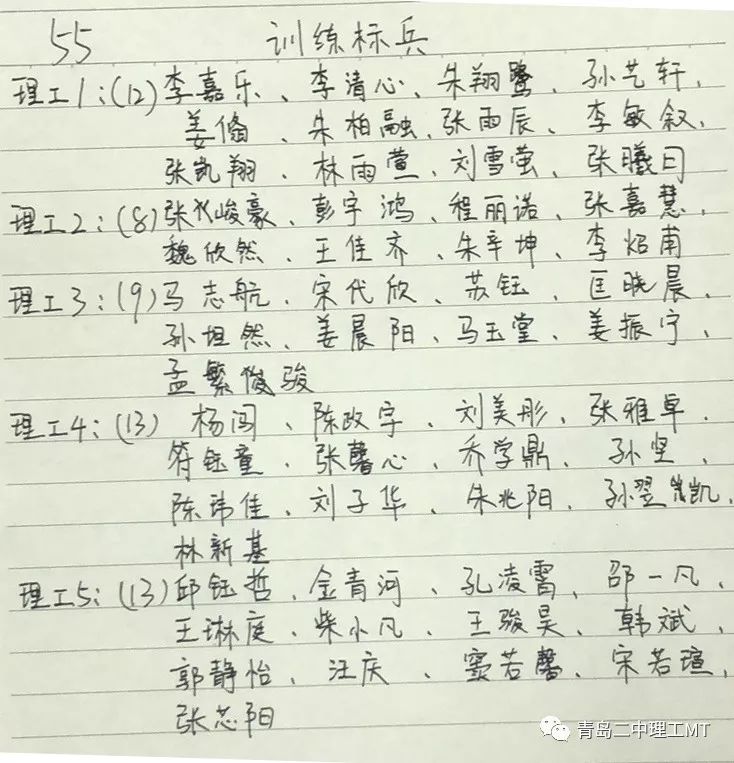 55 训练标兵
理工1:(12)李嘉乐、李清心、朱翔鹭、孙艺轩、
姜脩、朱柏融、张雨辰、李敏叙、
张凯翔、林雨萱、刘雪莹、张曦曰
理工2:(8)张峻豪、彭宇鸿、程丽诺、张嘉慧、
魏欣然、王佳齐、朱辛坤、李炤甫
理工3:(9)马志航、宋代欣、苏钰、匡晓晨、
孙坦然、姜晨阳、马玉堂、姜振宁、
孟繁骏
理工4:(13)杨闯、陈政宇、刘美彤、张雅卓、
符钰童、张馨心、乔学鼎、孙坚、
陈玮佳、刘子华、朱兆阳、孙翌凯、
林新基
理工5:(13)邱钰哲、金青河、孔凌霄、邵一凡、
王琳庭、柴小凡、王骏昊、韩斌、
郭静怡、汪庆、窦若馨、宋若瑄、
张芯阳
青岛二中理工MT